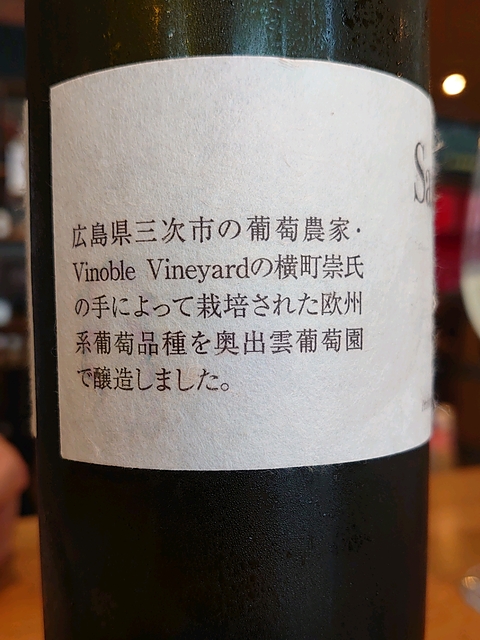 広島県三次市の葡萄農家・
Vinoble Vineyardの横町崇氏
の手によって栽培された欧州
系葡萄品種を奥出雲葡萄園
で醸造しました。